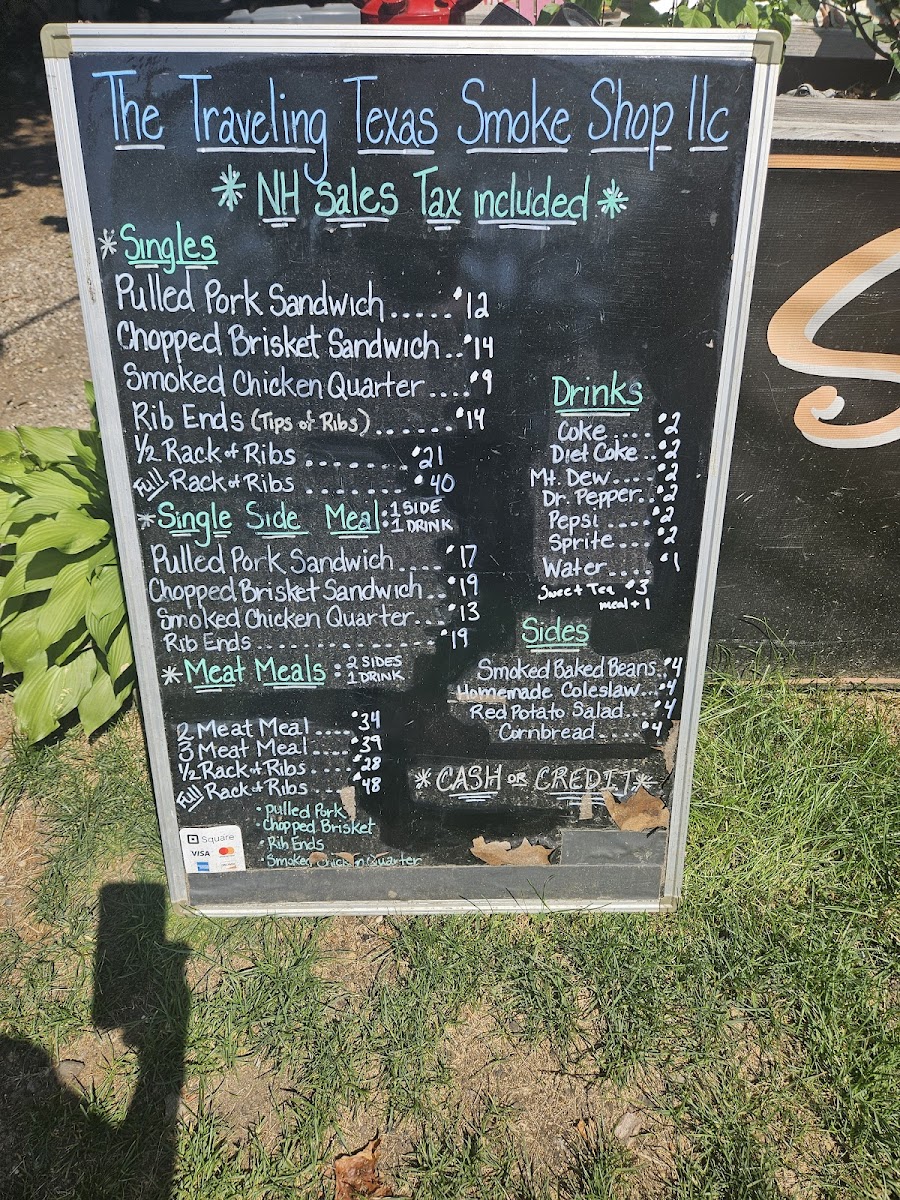 The Traveling Texas Smoke Shop llc
* NH Sales Tax included *
* Singles
Pulled Pork Sandwich..... $12
Chopped Brisket Sandwich.. $14
Smoked Chicken Quarter .... $9
Rib Ends (Tips of Ribs) ....... $14
1/2 Rack of Ribs ........ $21
Full Rack of Ribs ........ $40
* Single Side Meal : 1 SIDE
1 DRINK
Pulled Pork Sandwich .... $17
Chopped Brisket Sandwich.. $19
Smoked Chicken Quarter... $13
Rib Ends .................... $19
* Meat Meals : 2 SIDES
1 DRINK
2 Meat Meal .... $34
3 Meat Meal .... $39
1/2 Rack of Ribs .... $28
Full Rack of Ribs ... $48
• Pulled Pork
• Chopped Brisket
• Rib Ends
• Smoked Chicken Quarter
Drinks
Coke .... $2
Diet Coke .. $2
Mt. Dew.... $2
Dr. Pepper.. $2
Pepsi .... $2
Sprite ... $2
Water .... $1
Sweet Tea $3
meal + 1
Sides
Smoked Baked Beans.. $4
Homemade Coleslaw... $4
Red Potato Salad... $4
Cornbread .... $4
* CASH OR CREDIT *
Square
VISA
S